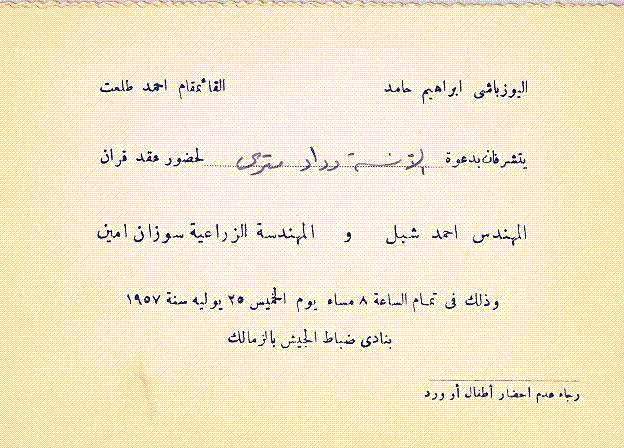 اليوزباشى ابراهيم حامد القائمقام احمد طلعت
يتشرفان بدعوة الآنسة وداد مترى لحضور عقد قران
المهندس احمد شبل و المهندسة الزراعية سوزان امين
وذلك فى تمام الساعة ٨ مساء يوم الخميس ٢٥ يوليه سنة ١٩٥٧
بنادى ضباط الجيش بالزمالك
رجاء عدم احضار أطفال أو ورد